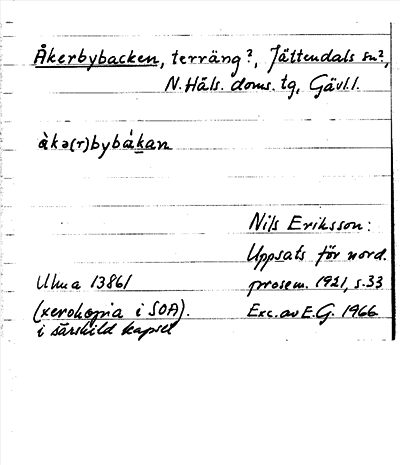 Åkerbybacken, terräng?, Jättendals sn?,
N. Häls. doms. tg, Gävl. l.
àkə(r)bybákan
Nils Eriksson:
Uppsats för nord.
Ulma 13861 prosem. 1921, s. 33
(xerokopia i SOA). Exc. av E.G. 1966
i särskild kapsel